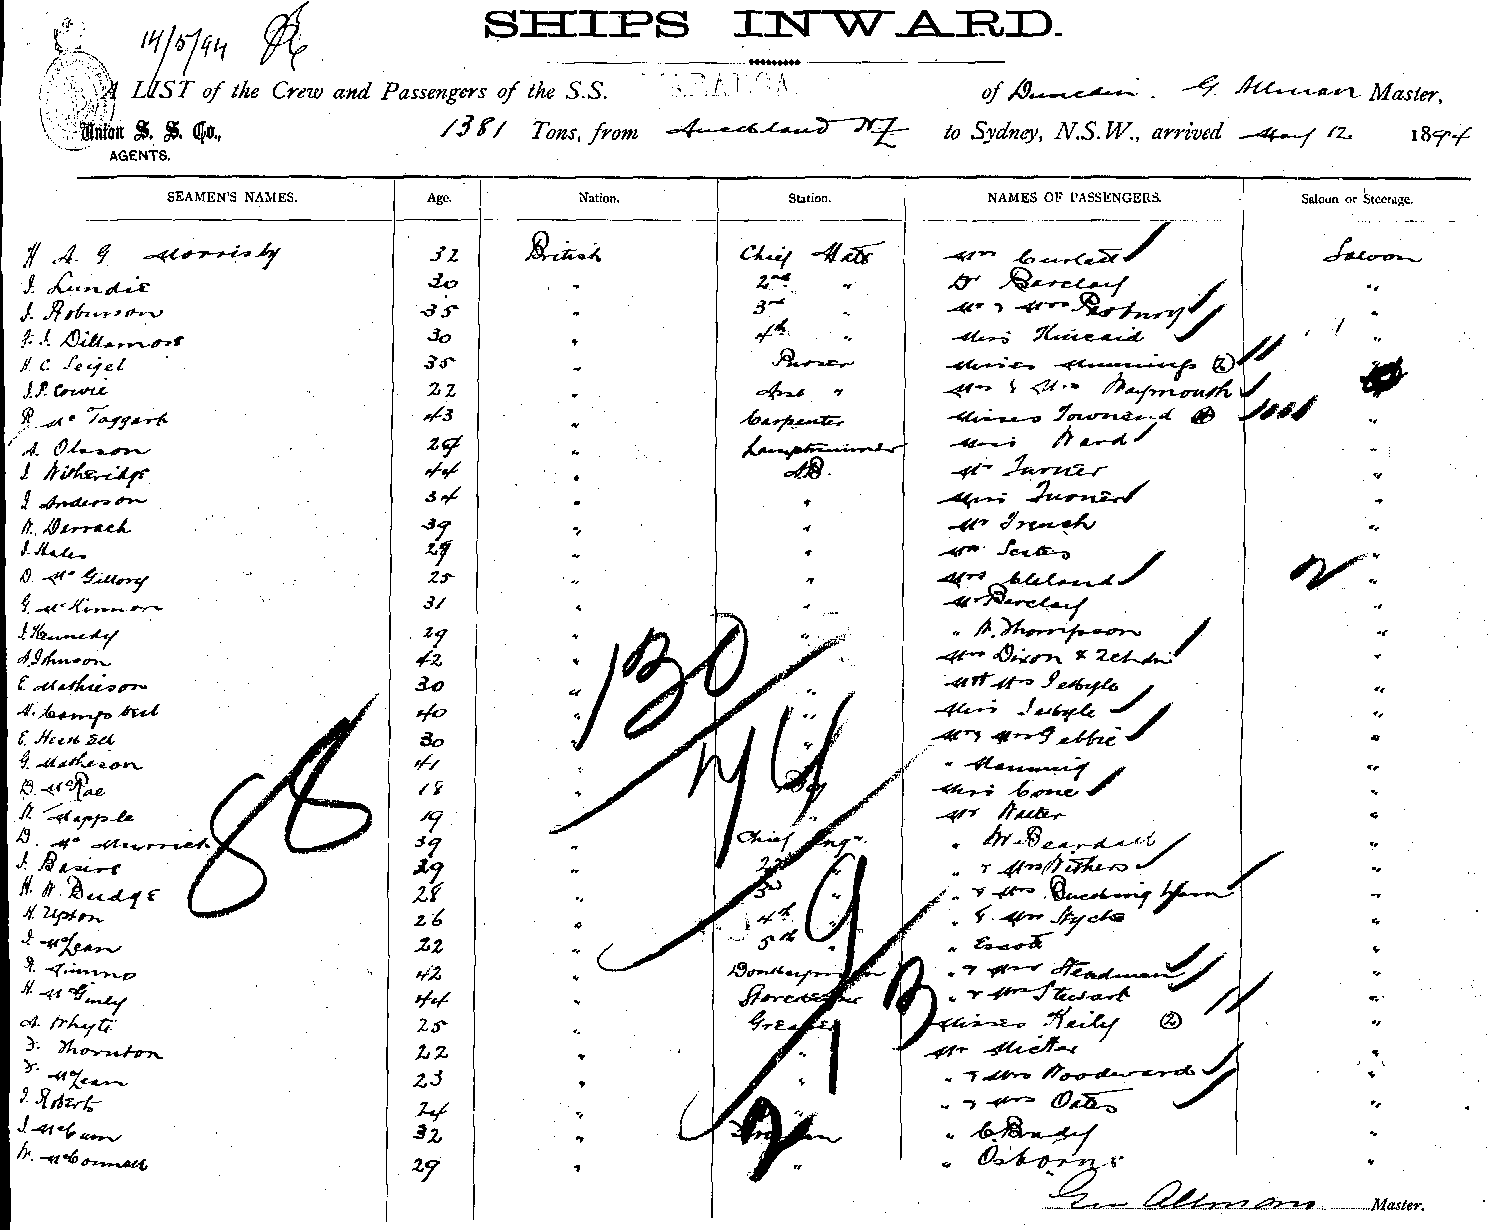 SHIPS INWARD.
14/5/94
A LIST of the Crew and Passengers of the S.S. of Dunedin. G. Allman Master,
Union S. S. Co., 1381 Tons, from Auckland NZ to Sydney, N.S.W., arrived May 12 1894
AGENTS.
SEAMEN'S NAMES. Age. Nation. Station. NAMES OF PASSENGERS. Saloon or Steerage.
H A G Morrisby 32 British Chief Mate Saloon
J. Lundie 30 " 2nd " Dr Barclay "
J. Robinson 35 " 3rd " Mr & Mrs "
30 " 4th " Miss Kincaid "
H. C. Seigel 35 " Purser Misses Mummings (2)
J. P. Cowie 22 " Asst " Mr & Mrs Waymouth
R McTaggart 43 " Carpenter Misses Townend (4) "
A. Olsson 24 " Lamptrimmer Miss Ward "
J Witheridge 44 " A.B. Mr Turner "
J Anderson 34 " " Miss Turner "
A. Darrach 39 " " Mr French "
J. Hales 29 " " "
D. McGillory 25 " " Mrs Cleland 2 "
G. McKinnon 31 " " Mr Barclay "
J. Kennedy 29 " " " A. Thompson "
A Johnson 42 " Mrs Dixon & 2 Chdn "
E. Mathieson 30 " " "
A. Campbell 40 " " Miss "
E. 30 " " Mr & Mrs Gebbie "
G. Matheson 41 " " Manning "
D. McRae 18 " Boy Miss Cone "
A. Mapple 19 " " Mr Walter "
D. 39 " Chief Engr. " W. Beardall "
J. Basire 29 " 2nd " " & Mrs Withers "
H. W. Dudge 28 " 3rd " " & Mrs "
H. Upton 26 " 4th " " & Mrs Wyche "
J. McLean 22 " 5th " " Escott "
R. Nimmo 42 " Donkeyman " & Mrs Steadman "
H. McGinly 44 " Storekeeper " & Mrs Stewart "
A. Whyte 25 " Greaser Misses Keily (2) "
F. Thornton 22 " " Mr "
F. McLean 23 " " " & Mrs Woodward "
J. Roberts 24 " " " & Mrs Oates "
J. McCann 32 " Fireman " C. Brady "
W. McConnell 29 " " " Osborne "
130
88
Geo Allman Master.